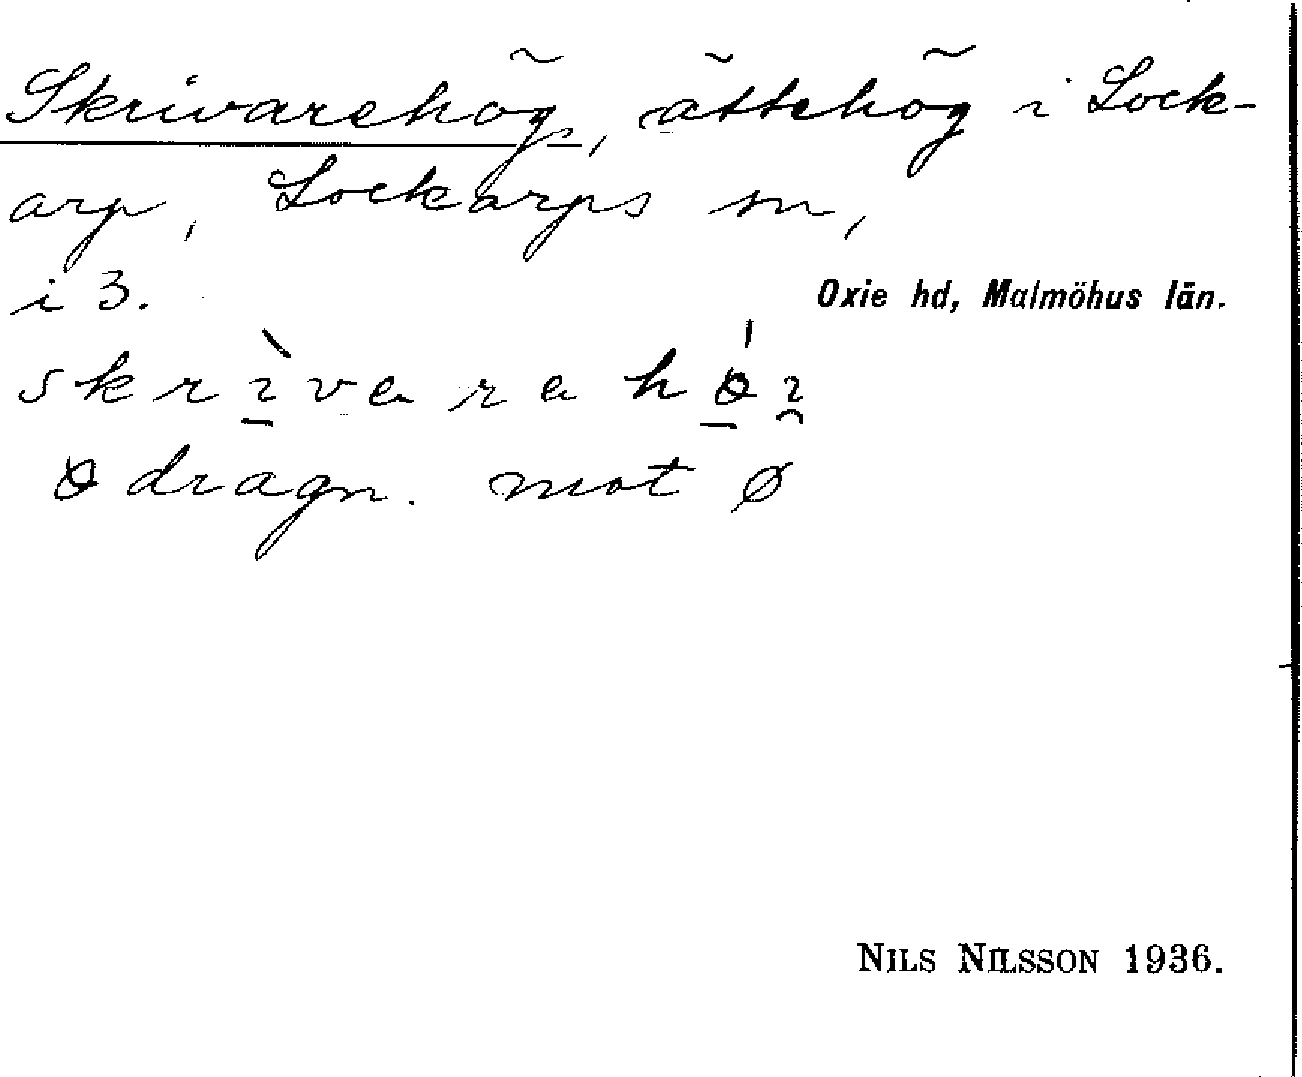 Skrivarehög, ättehög i Lock-
arp, Lockarps sn,
i 3.
Oxie hd, Malmöhus län.
skrìvarahǿi
ꝋ dragn. mot ø
NILS NILSSON 1936.